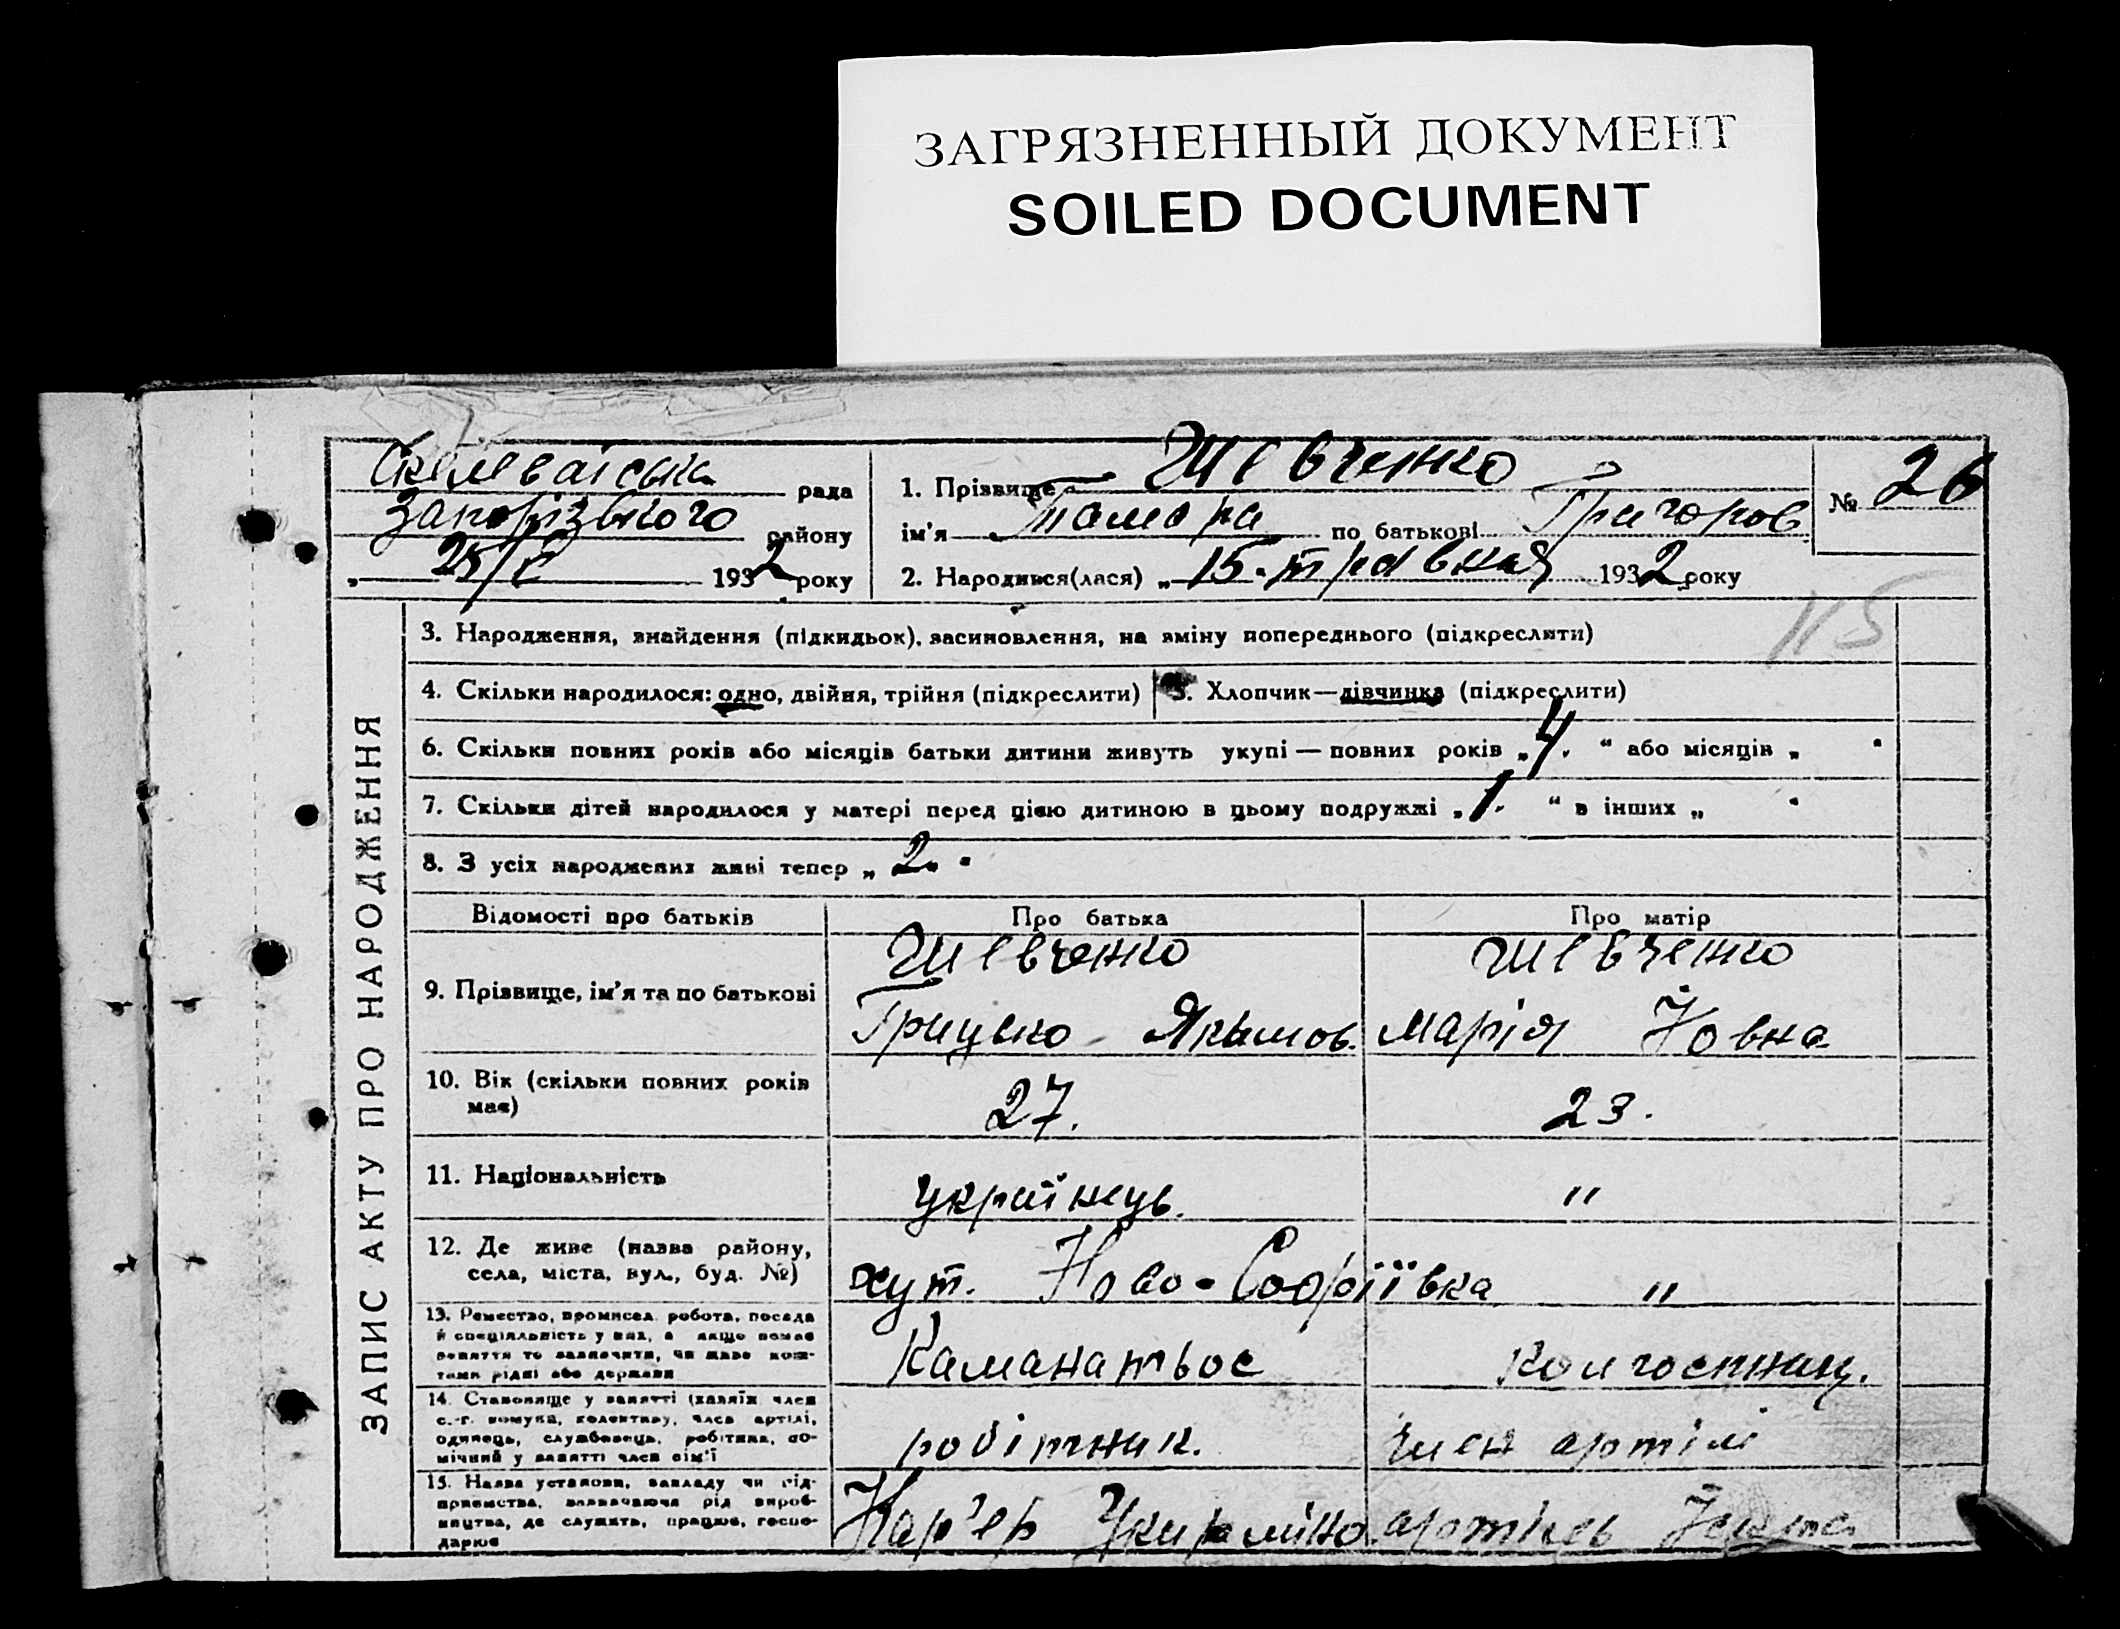 ЗАГРЯЗНЕННЫЙ ДОКУМЕНТ
SOILED DOCUMENT
Скелеваіська рада
Запорізького району
„ 25/V 1932 року
1. Прізвище Шевченко
ім'я Тамара по батькові Григоров
2. Народився(лася) „ 15. травня 1932 року
№ 26
115
ЗАПИС АКТУ ПРО НАРОДЖЕННЯ
3. Народження, знайдення (підкидьок), засиновлення, на зміну попереднього (підкреслити)
4. Скільки народилося: одно, двійня, трійня (підкреслити)
5. Хлопчик—дівчинка (підкреслити)
6. Скільки повних років або місяців батьки дитини живуть укупі — повних років „ 4. “ або місяців „ “
7. Скільки дітей народилося у матері перед цією дитиною в цьому подружжі „ 1. “ в інших „ “
8. З усіх народжених живі тепер „ 2. “
Відомості про батьків Про батька Про матір
9. Прізвище, ім'я та по батькові
Шевченко
Грицько Якимов.
Шевченко
Марія Йовна
10. Вік (скільки повних років має)
27.
23.
11. Національність
українець.
"
12. Де живе (назва району,
села, міста, вул., буд. №)
хут. Ново-Софіївка "
13. Ремество, промисел, робота, посада
й спеціяльність у них, а якщо немає
заняття то зазначити, чи живе кош-
тами рідні або держави
Каманатьос
колгоспниц.
14. Становище у занятті (хазяїн член
с.-г. комуни, колективу, член артілі,
одинець, службовець, робітник, до-
мічний у занятті член сім'ї
робітник.
член артілі
15. Назва установи, закладу чи під-
приємства, зазначаючи рід вироб-
ництва, де служить, працює, госпо-
дарює
Кар'ер
артіль Іскра